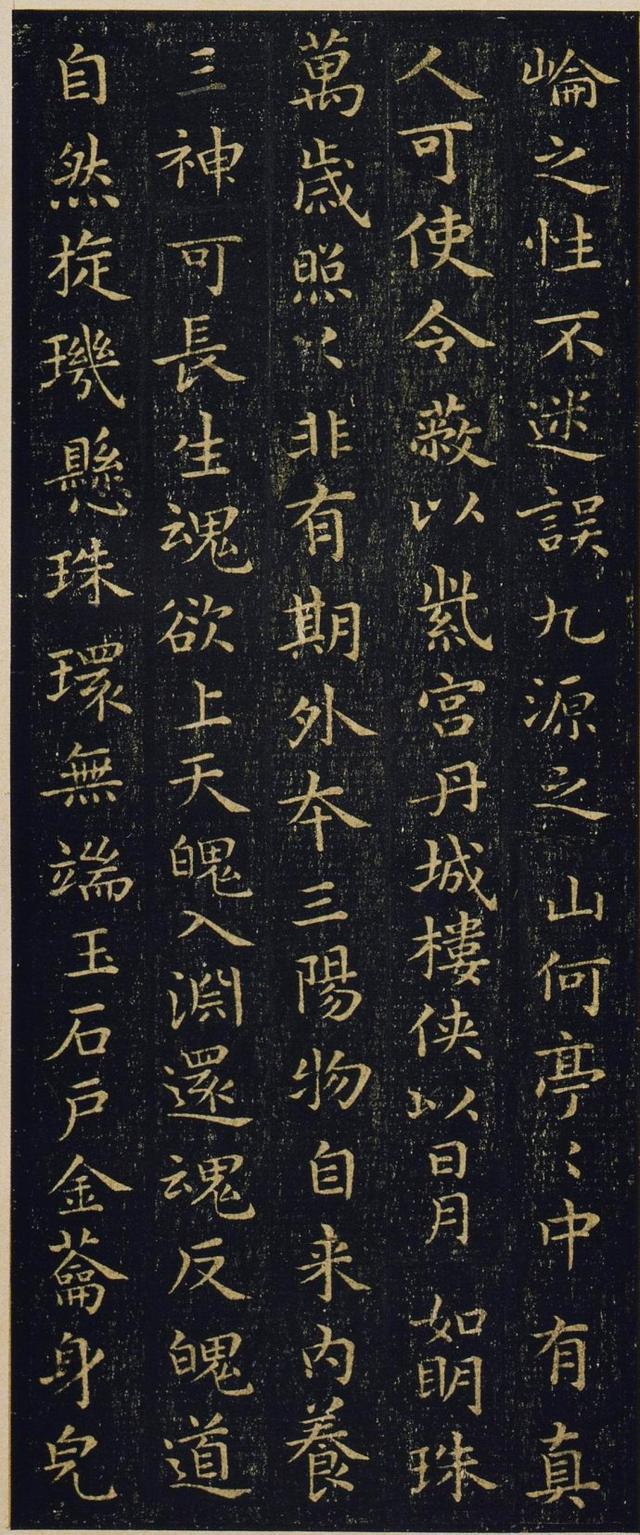 崘之性不迷誤九源之山何亭〻中有真
人可使令蔽以紫宮丹城樓俠以日月如明珠
萬歲照〻非有期外本三陽物自来内養
三神可長生魂欲上天魄入淵還魂反魄道
自然㫌璣懸珠環無端玉石戶金蘥身皃